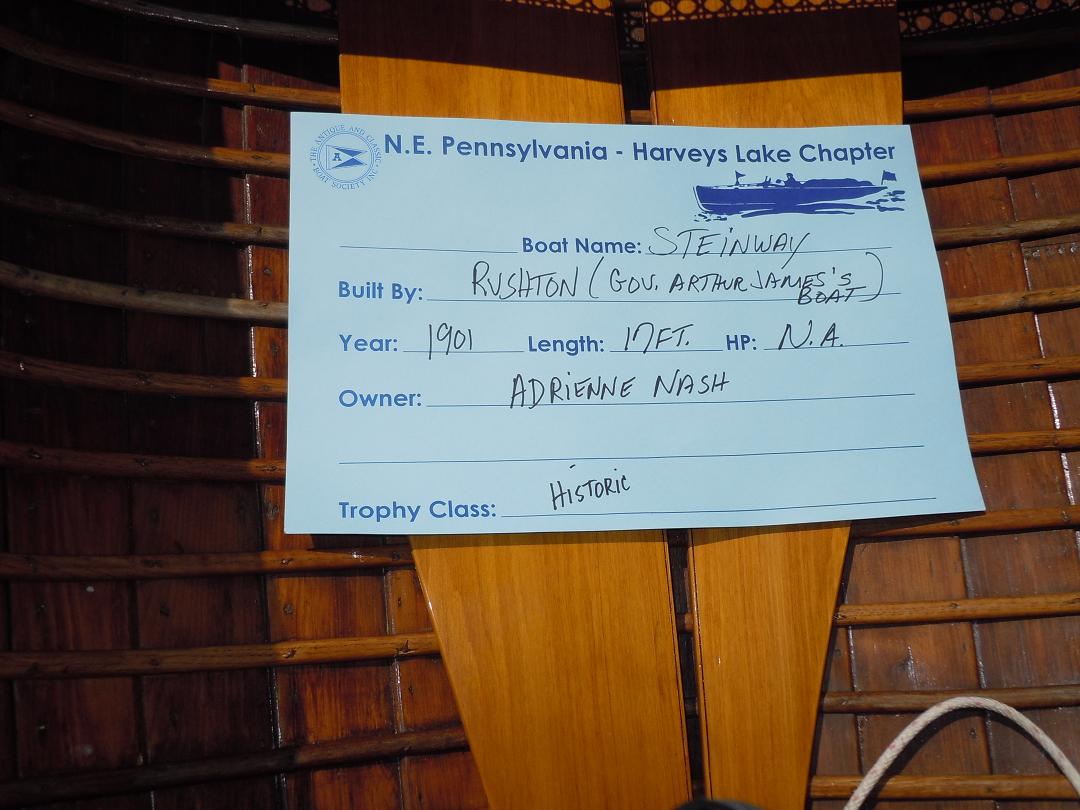 THE ANTIQUE AND CLASSIC BOAT SOCIETY INC
A
N.E. Pennsylvania - Harveys Lake Chapter
Boat Name: STEINWAY
Built By: RUSHTON (GOV. ARTHUR JAMES'S
BOAT)
Year: 1901 Length: 17FT. HP: N.A.
Owner: ADRIENNE NASH
Trophy Class: HISTORIC